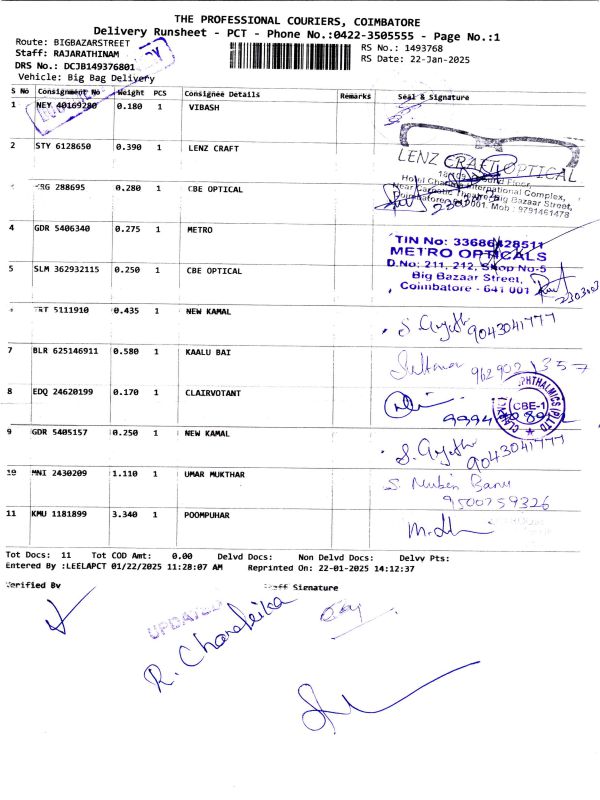 THE PROFESSIONAL COURIERS, COIMBATORE
Delivery Runsheet - PCT - Phone No.:0422-3505555 - Page No.:1
Route: BIGBAZARSTREET
RS No.: 1493768
Staff: RAJARATHINAM
RS Date: 22-Jan-2025
DRS No.: DCJB149376801
Vehicle: Big Bag Delivery
S No Consignment No Weight PCS Consignee Details Remarks Seal & Signature
1 NEY 40169280 0.180 1 VIBASH
2 STY 6128650 0.390 1 LENZ CRAFT
LENZ CRAFT OPTICAL
Ground Floor,
International Complex,
Big Bazaar Street,
Mob : 9791461478
KRG 288695 0.280 1 CBE OPTICAL
4 GDR 5406340 0.275 1 METRO
TIN No: 33686428511
METRO OPTICALS
D.No: 211, 212, Shop No-5
Big Bazaar Street,
Coimbatore - 641 001
5 SLM 362932115 0.250 1 CBE OPTICAL
TRT 5111910 0.435 1 NEW KAMAL
9043041777
7 BLR 625146911 0.580 1 KAALU BAI
8 EDQ 24620199 0.170 1 CLAIRVOTANT
CBE-1
9 GDR 5405157 0.250 1 NEW KAMAL
9043041777
10 MNI 2430209 1.110 1 UMAR MUKTHAR
9500759326
11 KMU 1181899 3.340 1 POOMPUHAR
Tot Docs: 11 Tot COD Amt: 0.00 Delvd Docs: Non Delvd Docs: Delvy Pts:
Entered By :LEELAPCT 01/22/2025 11:28:07 AM Reprinted On: 22-01-2025 14:12:37
Verified By Staff Signature
UPDATED